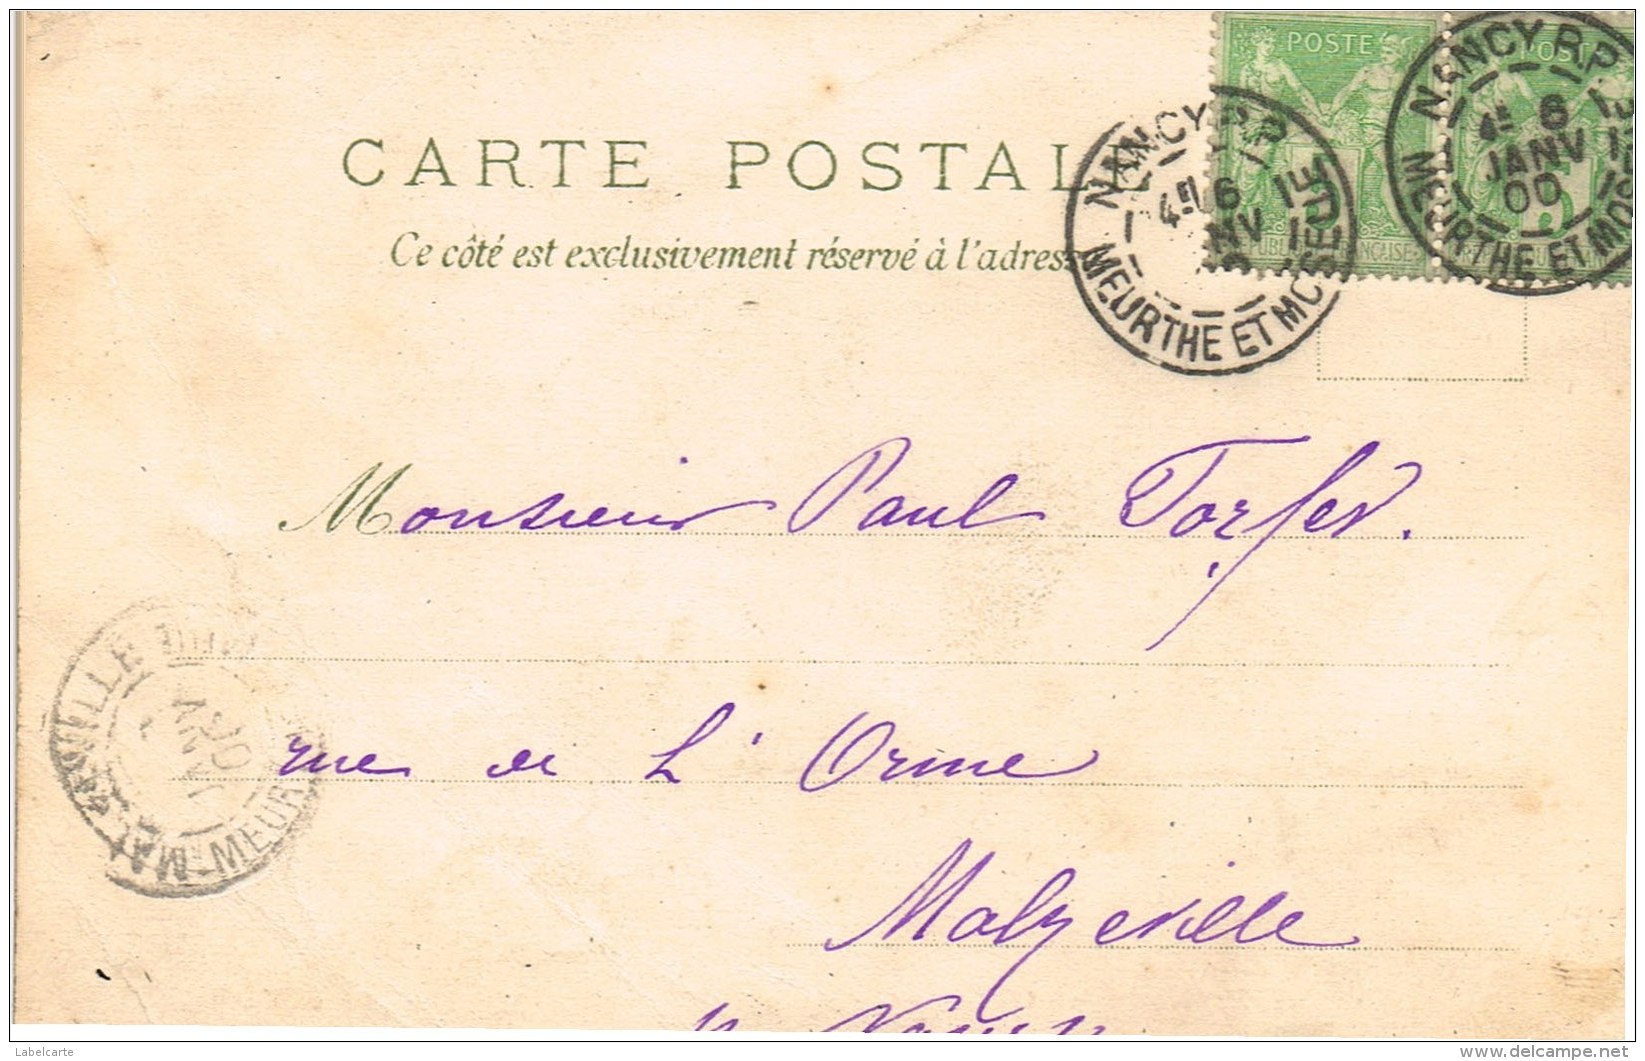 POSTE POST
NANCY R.P.
4E 6
JANV
00
MEURTHE ET MOS
NANCY R.P.
MEURTHE ET MOSELLE
CARTE POSTALE
Ce côté est exclusivement réservé à l'adresse
Monsieur Paul Torfer.
rue de L'Orme
Malzeville
MALZEVILLE
JANV
MEURTHE
Labelcarte
www.delcampe.net